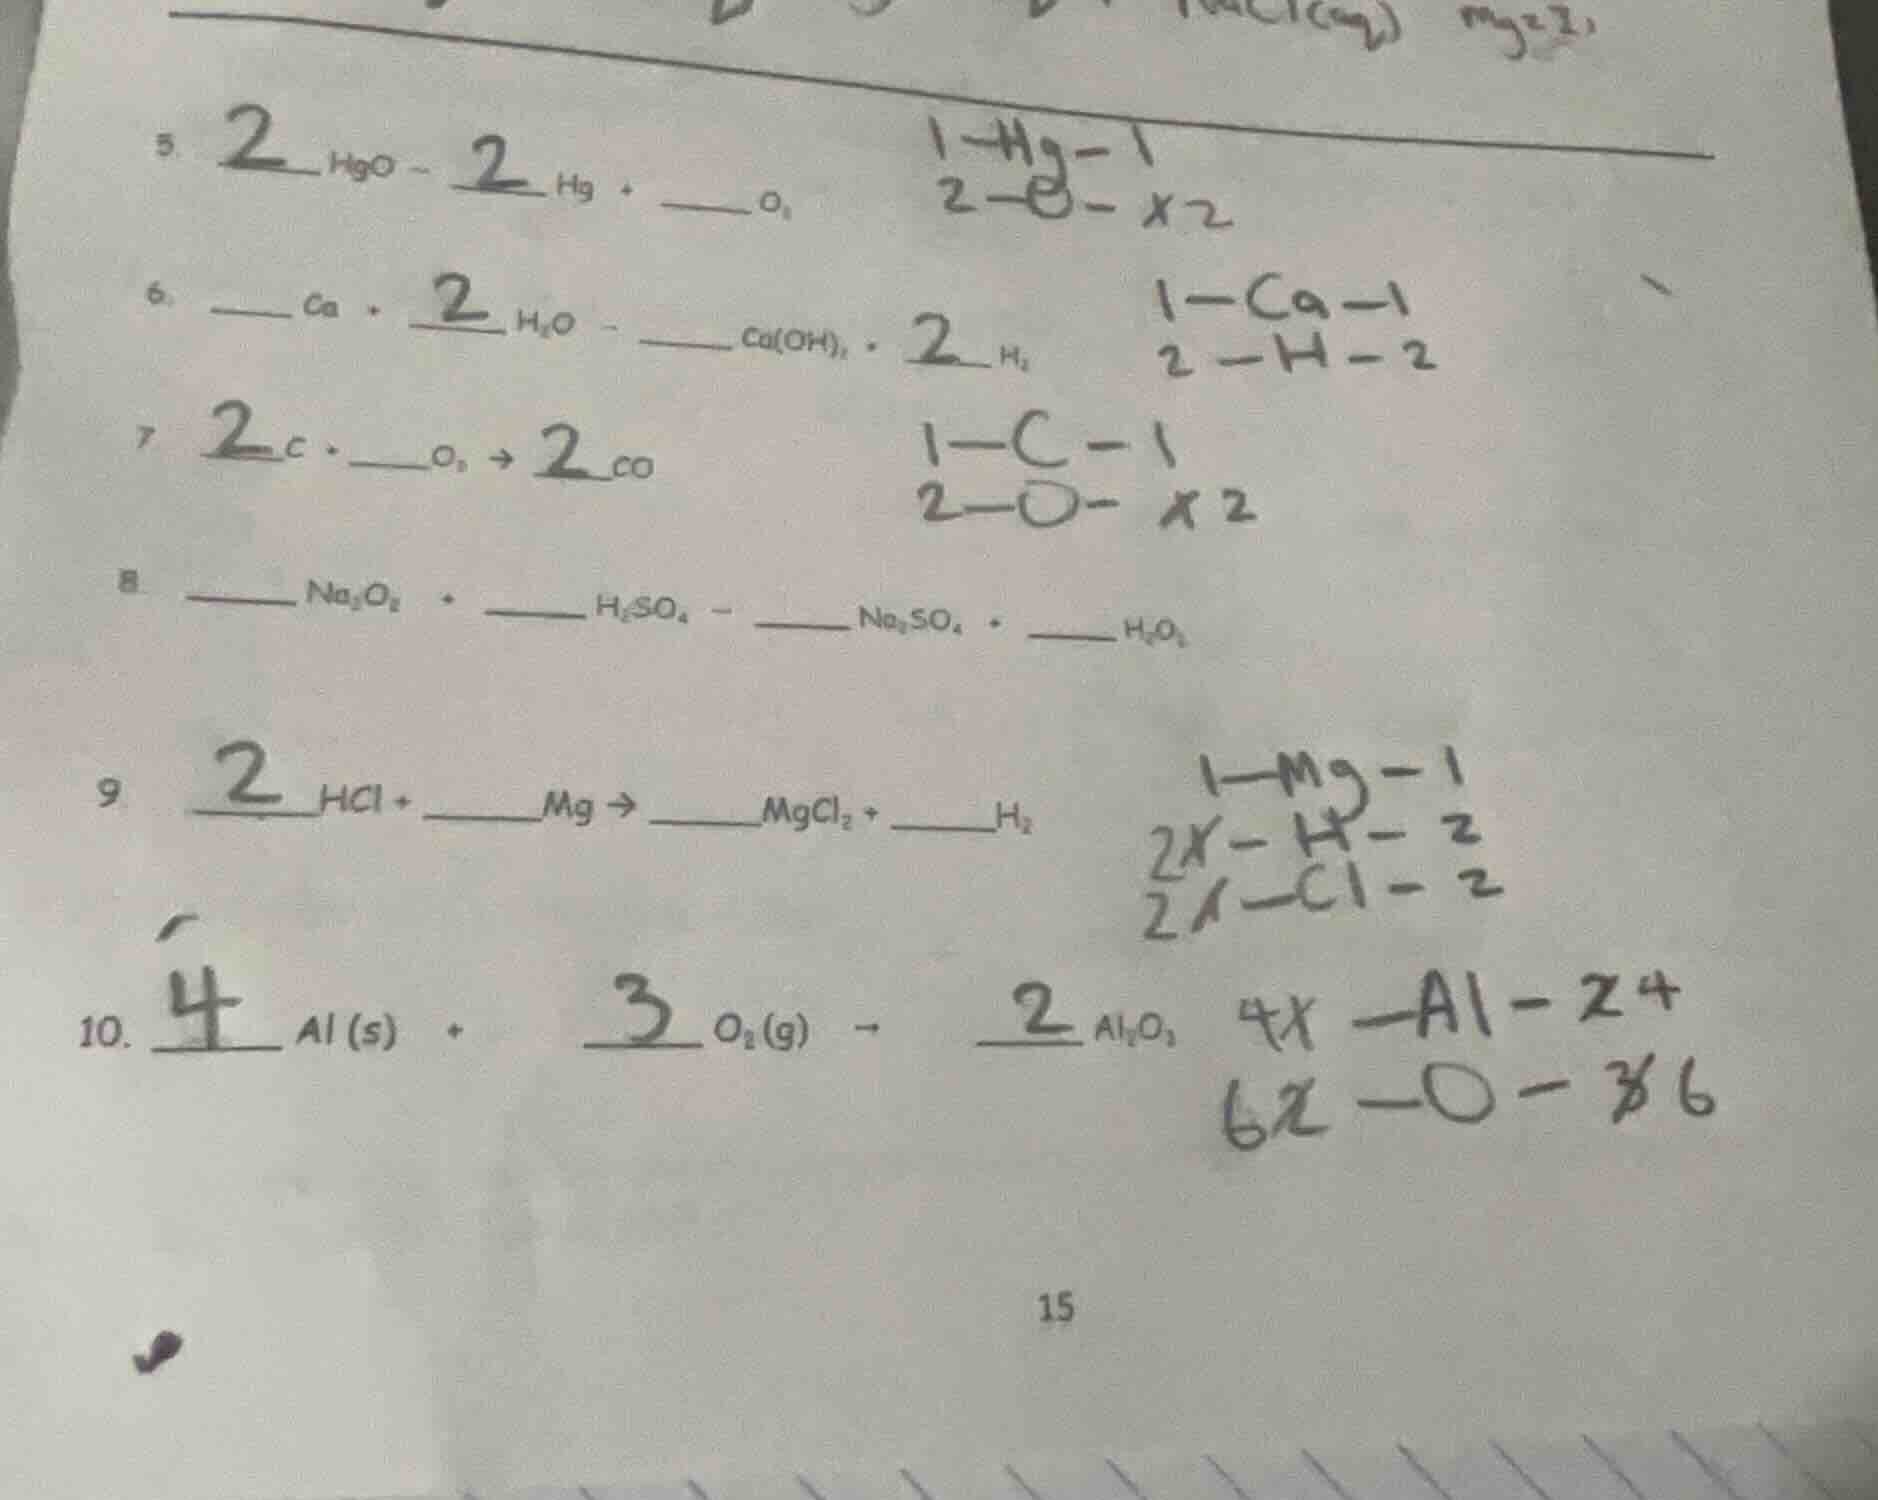 NaCl(aq)
5. 2 HgO - 2 Hg + ___ O₂ 1-Hg-1
2-O-x2
6. ___ Ca + 2 H₂O - ___ Ca(OH)₂ + 2 H₂ 1-Ca-1
2-H-2
7 2 C + ___ O₂ → 2 CO 1-C-1
2-O- x2
8. ___ Na₂O₂ + ___ H₂SO₄ - ___ Na₂SO₄ + ___ H₂O₂
9 2 HCl + ___ Mg → ___ MgCl₂ + ___ H₂ 1-Mg-1
2x-H-2
2x-Cl-2
10. 4 Al (s) + 3 O₂ (g) → 2 Al₂O₃ 4x-Al-24
62-O-36
15